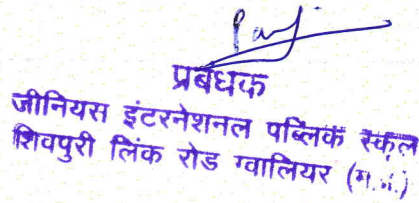 प्रबंधक
जीनियस इंटरनेशनल पब्लिक स्कूल
शिवपुरी लिंक रोड ग्वालियर (म.प्र.)